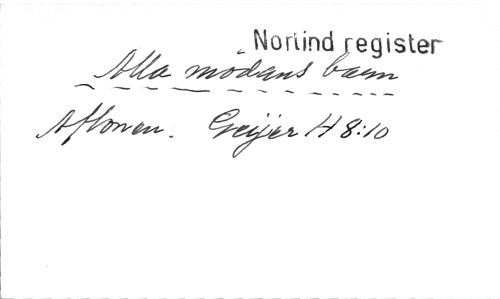 Norlind register
Alla mödans barn
Aftonen. Geijer H 8:10